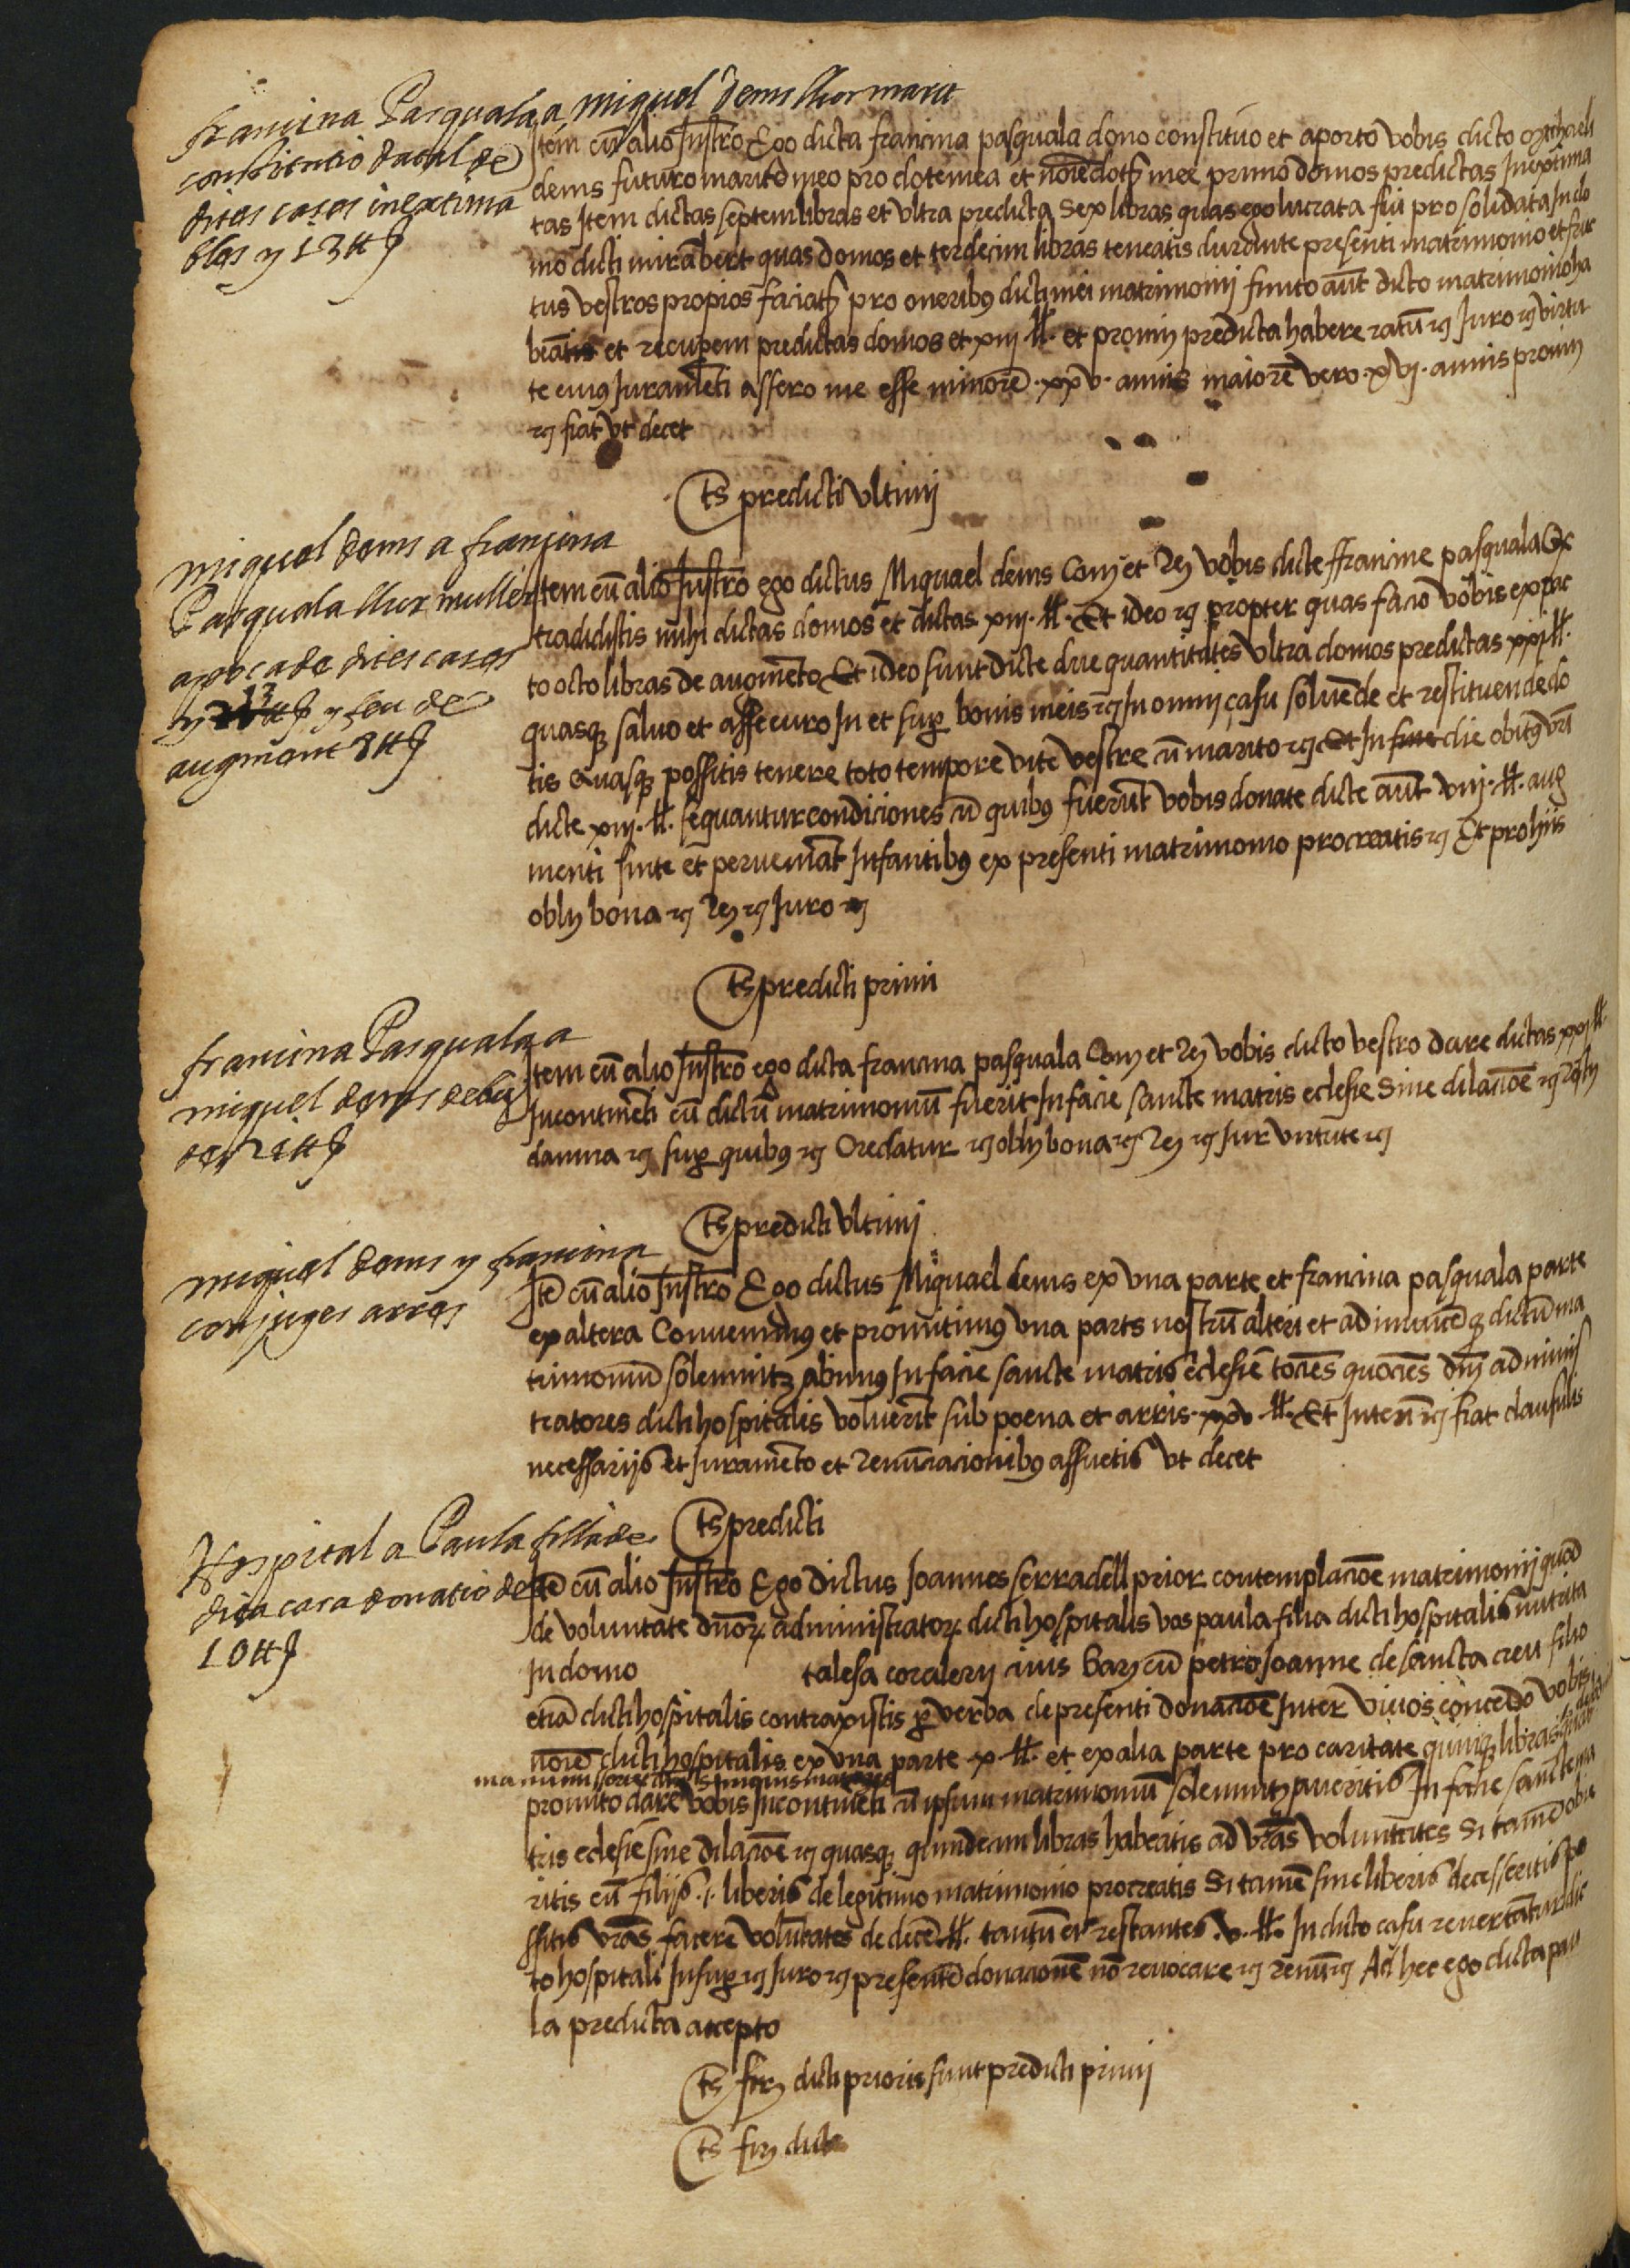 francina Pasquala a miquel dems llur marit
constitutio dotal de
dites cases inextima
bles y 13 ll
Item cū alio Instrō Ego dicta francina pasquala dono constituo et aporto vobis dicto michaeli
dems futuro marito meo pro dote mea et noīe dotꝭ mee primo domos predictas Inextima
tas Item dictas septem libras et vltra predicta sex libras quas ego lucrata fui pro solidata In do
mo dicti mirabert quas domos et terdecim libras teneatis durante presenti matrimonio et fruc
tus vestros propios faciatꝭ pro oneribꝰ dicti mei matrimonij finito aūt dicto matrimonio ha
beātis et recuperem predictas domos et xiij ll. et promī predicta habere ratū ꝛc Juro ꝛc virtu
te cuiꝰ Juramēti assero me esse minorē xxv annis maiorē vero xvj annis promī
ꝛc fiat vt decet
Ts predicti vltimi
miquel dems a francina
Pasquala llur muller
apoca de dites cases
y 13 ll y feu de
augment 8 ll
Item cū alio Instrō ego dictus Miquael dems Conf et Rꝫ vobis dicte ffrancine pasquala Qꝫ
tradidistis mihi dictas domos et dictas xiij. ll. Et ideo ꝛc propter quas facio vobis ex pac
to octo libras de augmēto Et ideo sunt dicte due quantitates vltra domos predictas xxj ll.
quasqꝫ saluo et assecuro In et sup bonis meis ꝛc In omni casu soluēde et restituende do
tis Quasqꝫ possitis tenere toto tempore vite vestre cū marito ꝛc Et In fine die obitꝰ vrī
dicte xiij. ll. sequantur condiciones cū quibꝰ fuerūt vobis donate dicte aūt viij. ll. aug
menti sinte et perueniāt Infantibꝰ ex presenti matrimonio procreatis ꝛc Et pro hijs
oblꝫ bona ꝛc Rꝫ ꝛc Juro ꝛc
Ts predicti primi
francina Pasquala a
miquel dems debi
de 21 ll
Item cū alio Instrō ego dicta francina pasquala Conf et Rꝫ vobis dicto vestro dare dictas xxj ll.
Incontinēti cū dictū matrimoniū fuerit In facie sancte matris eclesie Sine dilacōe ꝛc
damna ꝛc sup quibꝰ ꝛc Credatur ꝛc oblꝫ bona ꝛc Rꝫ ꝛc Jur virtute ꝛc
Ts predicti vltimi
miquel dems y francina
conjuges arres
Itē cū alio Instrō Ego dictus Miquael dems ex vna parte et francina pasquala parte
ex altera Conuenimꝰ et promitimꝰ vna parts nostrū alteri et ad inuicē qꝫ dictū ma
trimoniū solemnitꝫ abimꝰ In facie sancte matris eclesie tocies quocies dnī adminis
tratores dicti hospitalis voluerīt sub poena et arris xxv ll. Et Interī ꝛc fiat clausulis
necessarijs et Juramēto et renūciacionibꝰ assuetis vt decet
Ts predicti
Hospital a Paula filla de
dita casa donatio de
10 ll
Itē cū alio Instrō Ego dictus Joannes serradell prior contemplacōe matrimonij quod
de voluntate dnōꝝ administratoꝝ dicti hospitalis vos paula filia dicti hospitalis nutrita
In domo talesa coralerij ciuis Barꝫ cū petro Joanne de sancta creu filio
etiā dicti hospitalis contraxistis p verba de presenti donacōe Inter viuos concedo vobis
noīe dicti hospitalis ex vna parte x ll. et ex alia parte pro caritate quinqꝫ libras
promito dare vobis Incontinēti cū ipsum matrimoniū solemnitꝫ aueritis In facie sancte ma
tris eclesie sine dilacōe ꝛc quasqꝫ quindecim libras habeatis ad vrās voluntates Si tamē obie
ritis cū filijs .i. liberis de legitimo matrimonio procreatis Si tamē sine liberis decesseritis po
ssitis vrās facere volūtates de decē ll. tantū et restantes v ll. In dicto casu reuertātur dic
to hospitali Insup ꝛc Juro ꝛc presentē donacionē nō reuocare ꝛc renūꝛc Ad hec ego dicta pau
la predicta accepto
Ts firꝫ dicti prioris sunt predicti primi
Ts firꝫ dicte